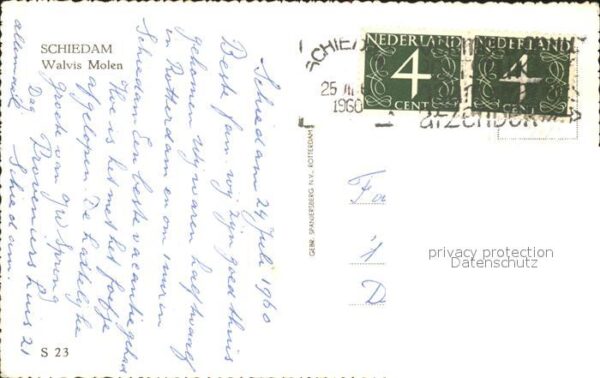 SCHIEDAM
Walvis Molen
Schiedam 24 Juli 1960
Beste fam. wij zijn goed thuis
gekomen wij waren half twaalf
in Rotterdam en om 1 uur in
Schiedam. Een beste vacantie gehad
Hu is het met het fobje
afgelopen. De hartelijke
groete van
allemaal
Dag Proveniershuis 21
Schiedam.
S 23
GEBR. SPANJERSBERG N.V., ROTTERDAM
NEDERLAND
4
CENT
NEDERLAND
4
CENT
SCHIEDAM
25.VII
1960
afzender
Fa
D
privacy protection
Datenschutz